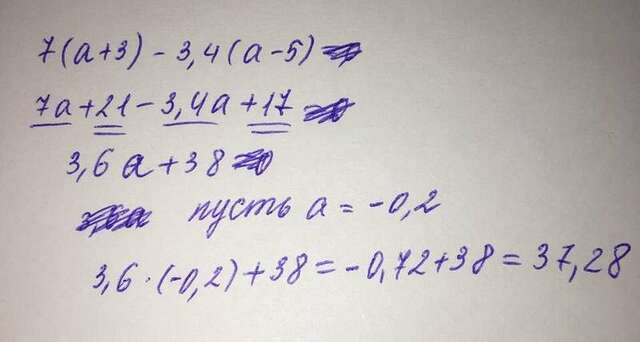 7(a+3) - 3,4(a-5)
7a+21-3,4a+17
3,6a+38
пусть a = -0,2
3,6·(-0,2)+38=-0,72+38=37,28